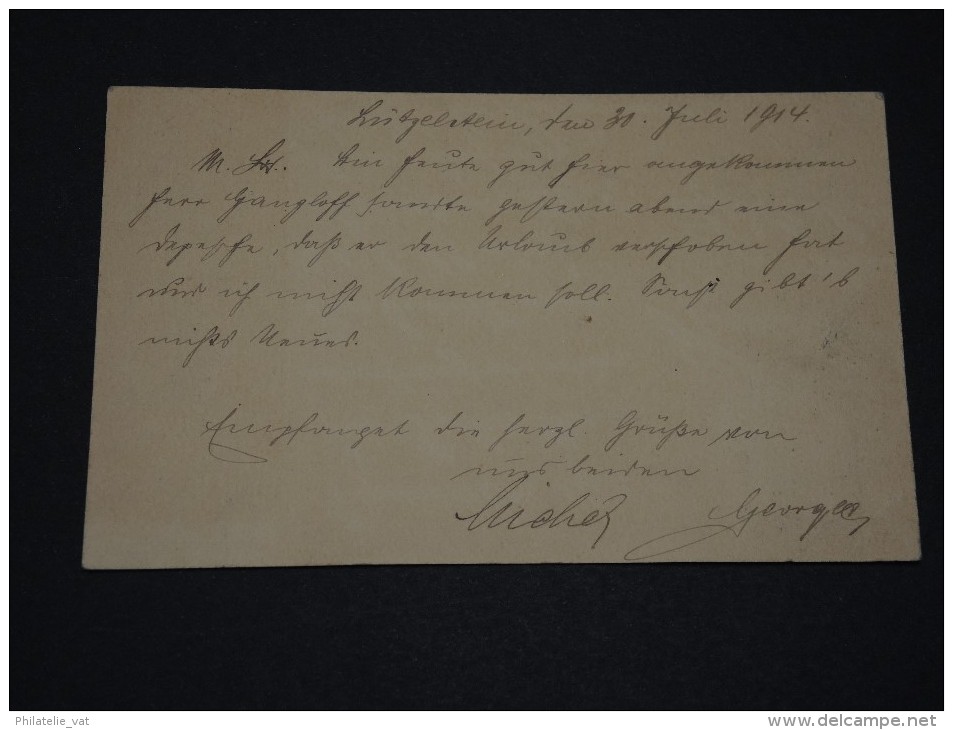 Lützelstein, den 30. Juli 1914.
M. Lb. Bin heute gut hier angekommen
Herr Gangloff sandte gestern abend eine
Depesche, daß er den Urlaub verschoben hat
und ich nicht kommen soll. Sonst gibt's
nichts Neues.
Empfanget die herzl. Grüße von
uns beiden
Michel Georges
Philatelie_vat
www.delcampe.net